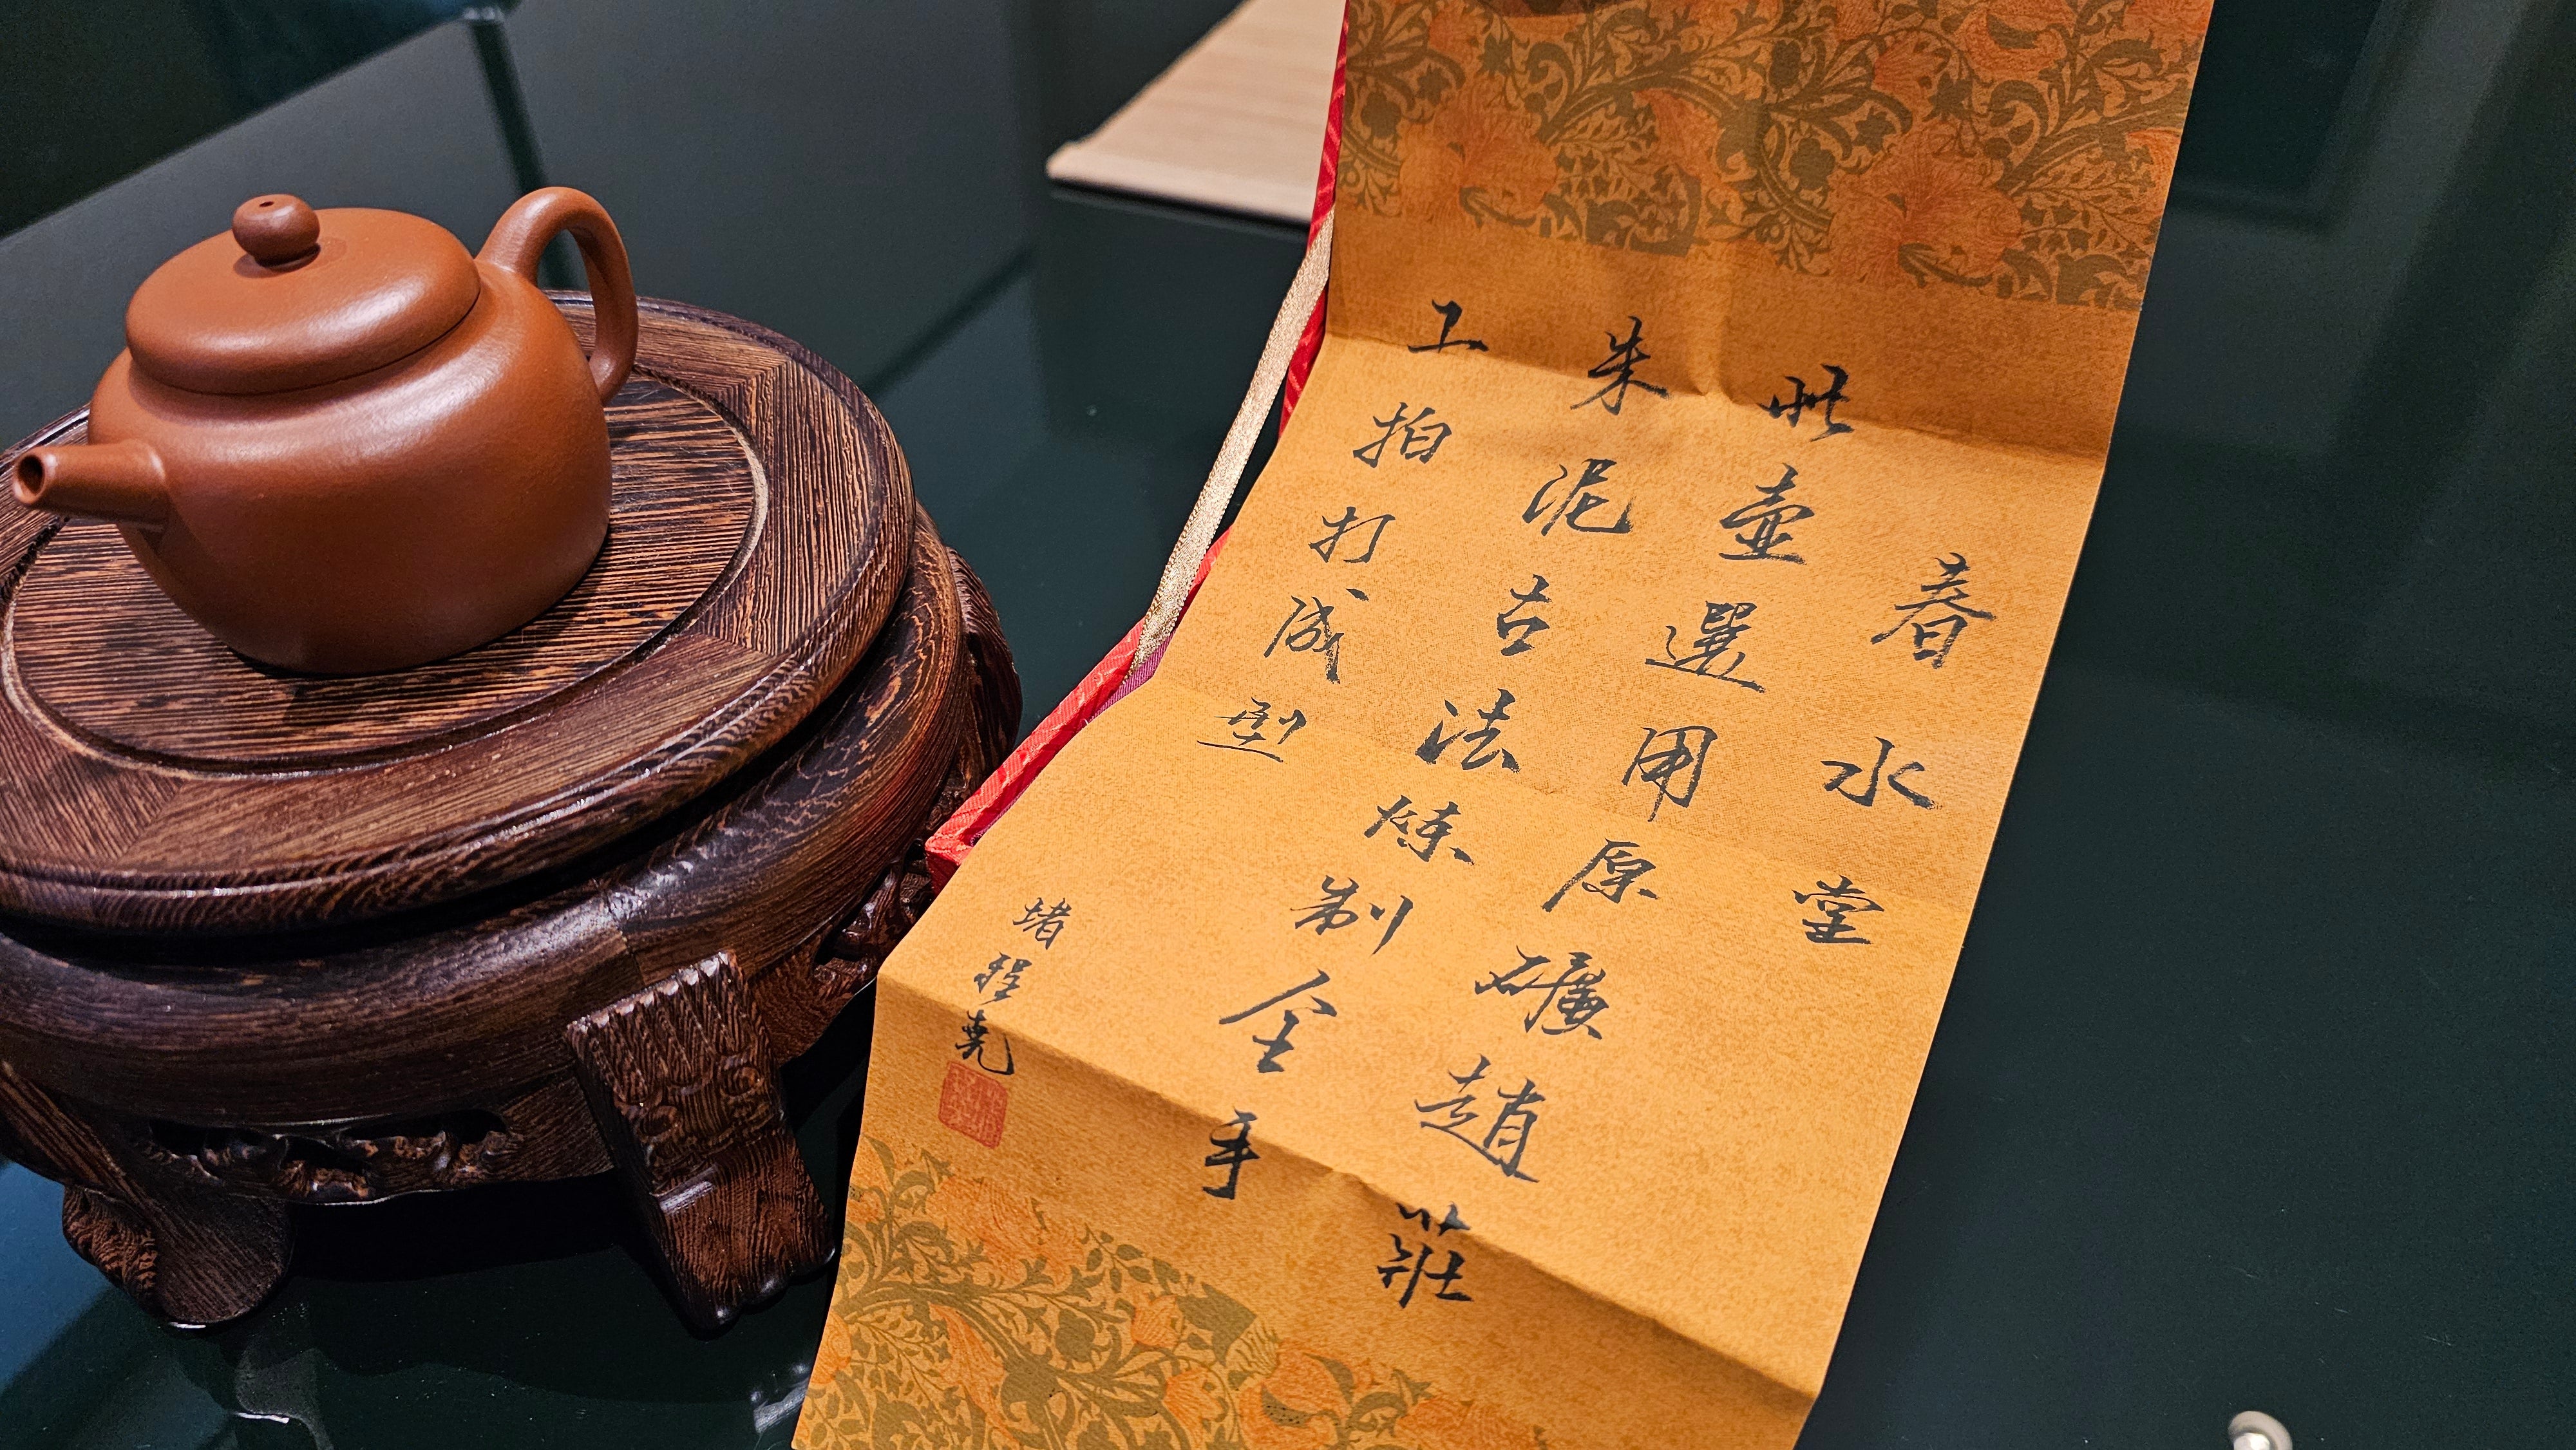 春水堂
此壺選用原礦趙莊
朱泥古法煉制全手
工拍打成型
堵程堯